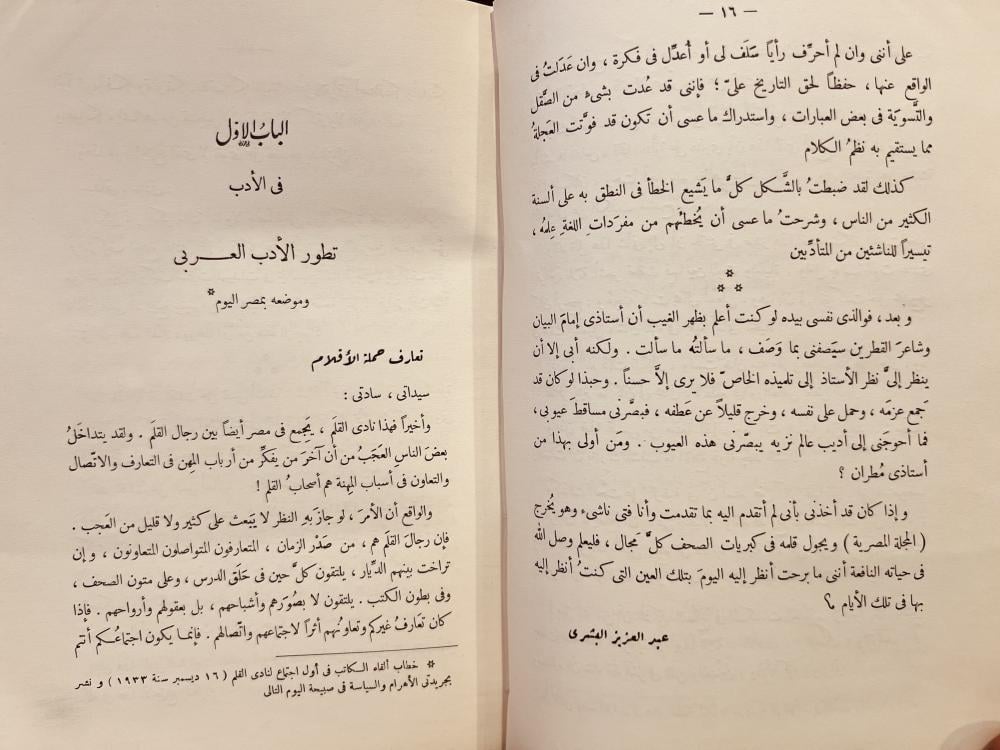 — ١٦ —
على أننى وان لم أحرِّف رأياً سَلَف لى أو أُعدِّل فى فكرة ، وان عَدَلتُ فى
الواقع عنها ، حفظاً لحق التاريخ علىّ ؛ فإننى قد عُدت بشىء من الصَّقل
والتَّسوية فى بعض العبارات ، واستدراك ما عسى أن تكون قد فوَّتت العجلةُ
مما يستقيم به نظمُ الكلام
كذلك لقد ضبطتُ بالشَّكل كلَّ ما يَشيع الخطأ فى النطق به على ألسنة
الكثير من الناس ، وشرحتُ ما عسى أن يُخطئَهم من مفرَدات اللغةِ عِلمُه ،
تيسيراً للناشئين من المتأدِّبين
*
* *
و بعد ، فوالذى نفسى بيده لو كنت أعلم بظهر الغيب أن أستاذى إمامَ البيان
وشاعرَ القطرين سيَصفنى بما وَصَف ، ما سألتُه ما سألت . ولكنه أبى إلا أن
ينظر إلىَّ نظر الأستاذ إلى تلميذه الخاصّ فلا يرى إلاَّ حسناً . وحبذا لو كان قد
جَمع عزمَه ، وحمل على نفسه ، وخرج قليلاً عن عَطفه ، فبصَّرنى مساقطَ عيوبى ،
فما أحوجَنى إلى أديب عالم نزيه يبصّرنى هذه العيوب . ومَن أولى بهذا من
أستاذى مُطران ؟
و إذا كان قد أخذنى بأنى لم أتقدم اليه بما تقدمت وأنا فتى ناشىء وهو يُخرج
( المجلة المصرية ) ويجول قلمه فى كبريات الصحف كلَّ مَجال ، فليعلم وصل الله
فى حياته النافعة أننى ما برحت أنظر إليه اليومَ بتلك العين التى كنتُ أنظر إليه
بها فى تلك الأيام ؟
عبد العزيز البشرى
البابُ الأوّل
فى الأدب
تطور الأدب العـــربى
وموضعه بمصر اليوم*
تعارف حملة الأقلام
سيداتى ، سادتى :
وأخيراً فهذا نادى القلَم ، يَجمع فى مصر أيضاً بين رجال القلَم . ولقد يتداخَلُ
بعضَ الناسِ العجَبُ من أن آخرَ من يفكّر من أرباب المِهن فى التعارف والاتّصال
والتعاون فى أسباب المِهنة هم أصحابُ القلم !
والواقع أن الأمرَ ، لو جازَ به النظر لا يَبعث على كثير ولا قليل من العَجب .
فإن رجالَ القلَم هم ، من صَدْر الزمان ، المتعارفون المتواصلون المتعاونون ، و إن
تراخت بينهم الدِّيار ، يلتقون كلَّ حين فى حَلَق الدرس ، وعلى متون الصحف ،
وفى بطون الكتب . يلتقون لا بصُوَرهم وأشباحهم ، بل بعقولهم وأرواحهم . فإذا
كان تعَارفُ غيركم وتعاونُهم أثراً لاجتماعهم واتّصالهم . فإنما يكون اجتماعُكم أنتم
* خطاب ألقاه الكاتب فى أول اجتماع لنادى القلم ( ١٦ ديسمبر سنة ١٩٣٣ ) و نشر
بجريدتى الأهرام والسياسة فى صبيحة اليوم التالى